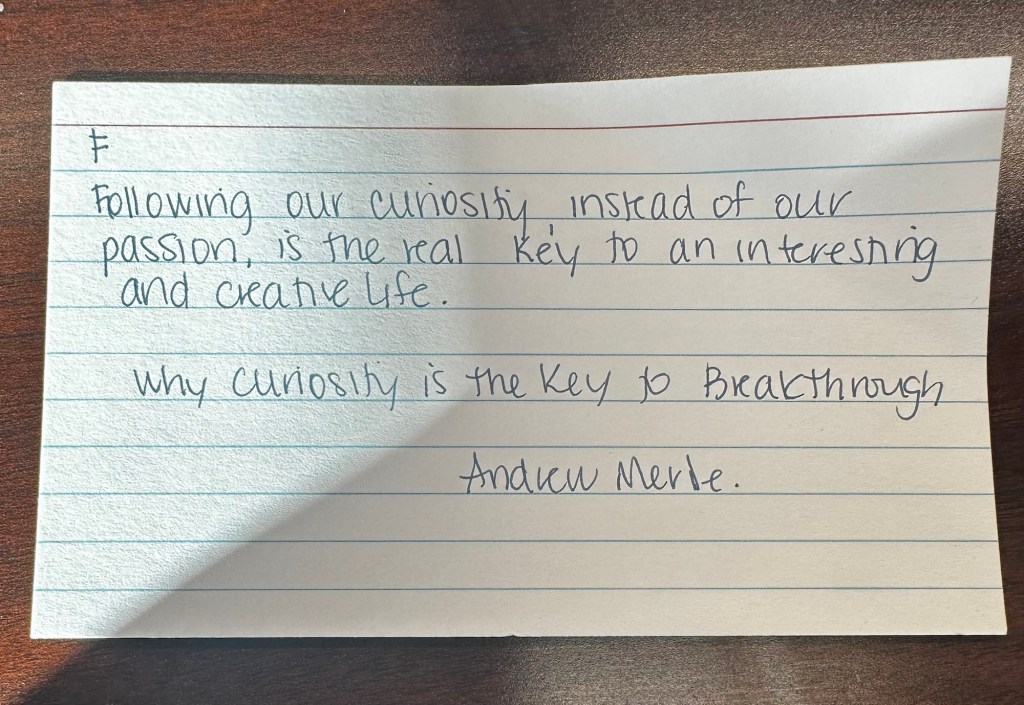 F
Following our curiosity, instead of our
passion, is the real key to an interesting
and creative life.
Why curiosity is the key to Breakthrough
Andrew Merle.